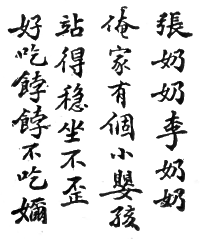 張奶奶李奶奶
俺家有個小嬰孩
站得穩坐不歪
好吃餑餑不吃嬭